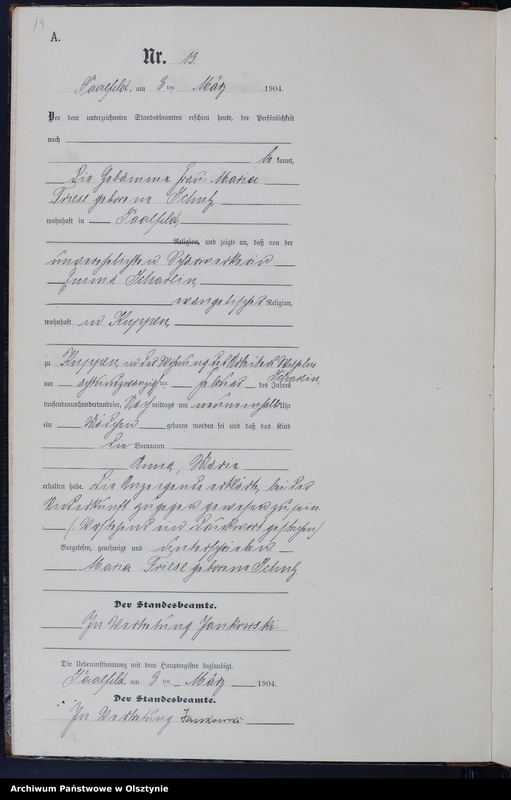 14
A.
Nr. 13.
Saalfeld, am 3ten März 1904.
Vor dem unterzeichneten Standesbeamten erschien heute, der Persönlichkeit
nach
be kannt,
die Hebamme Frau Maria
Friese geborene Schulz
wohnhaft in Saalfeld,
Religion, und zeigte an, daß von der
unverehelichten Schwerkerin
Emma Scharlin
evangelischer Religion,
wohnhaft in Kuppen,
zu Kuppen in der Wohnung des Arbeiters Wilhelm
Scharlin,
am achtundzwanzigsten Februar des Jahres
tausendneunhundertundvier, Nach mittags um neuneinhalb Uhr
ein Mädchen geboren worden sei und daß das Kind
die Vornamen
Anna, Marie
erhalten habe. Die Anzeigende erklärte, bei der
Niederkunft zugegen gewesen zu sein.
(Vorstehend ein Druckwort gestrichen)
Vorgelesen, genehmigt und unterschrieben
Maria Friese geborene Schulz
Der Standesbeamte.
In Vertretung Jankowski
Die Uebereinstimmung mit dem Hauptregister beglaubigt.
Saalfeld, am 3ten März 1904.
Der Standesbeamte.
In Vertretung Jankowski
Archiwum Państwowe w Olsztynie